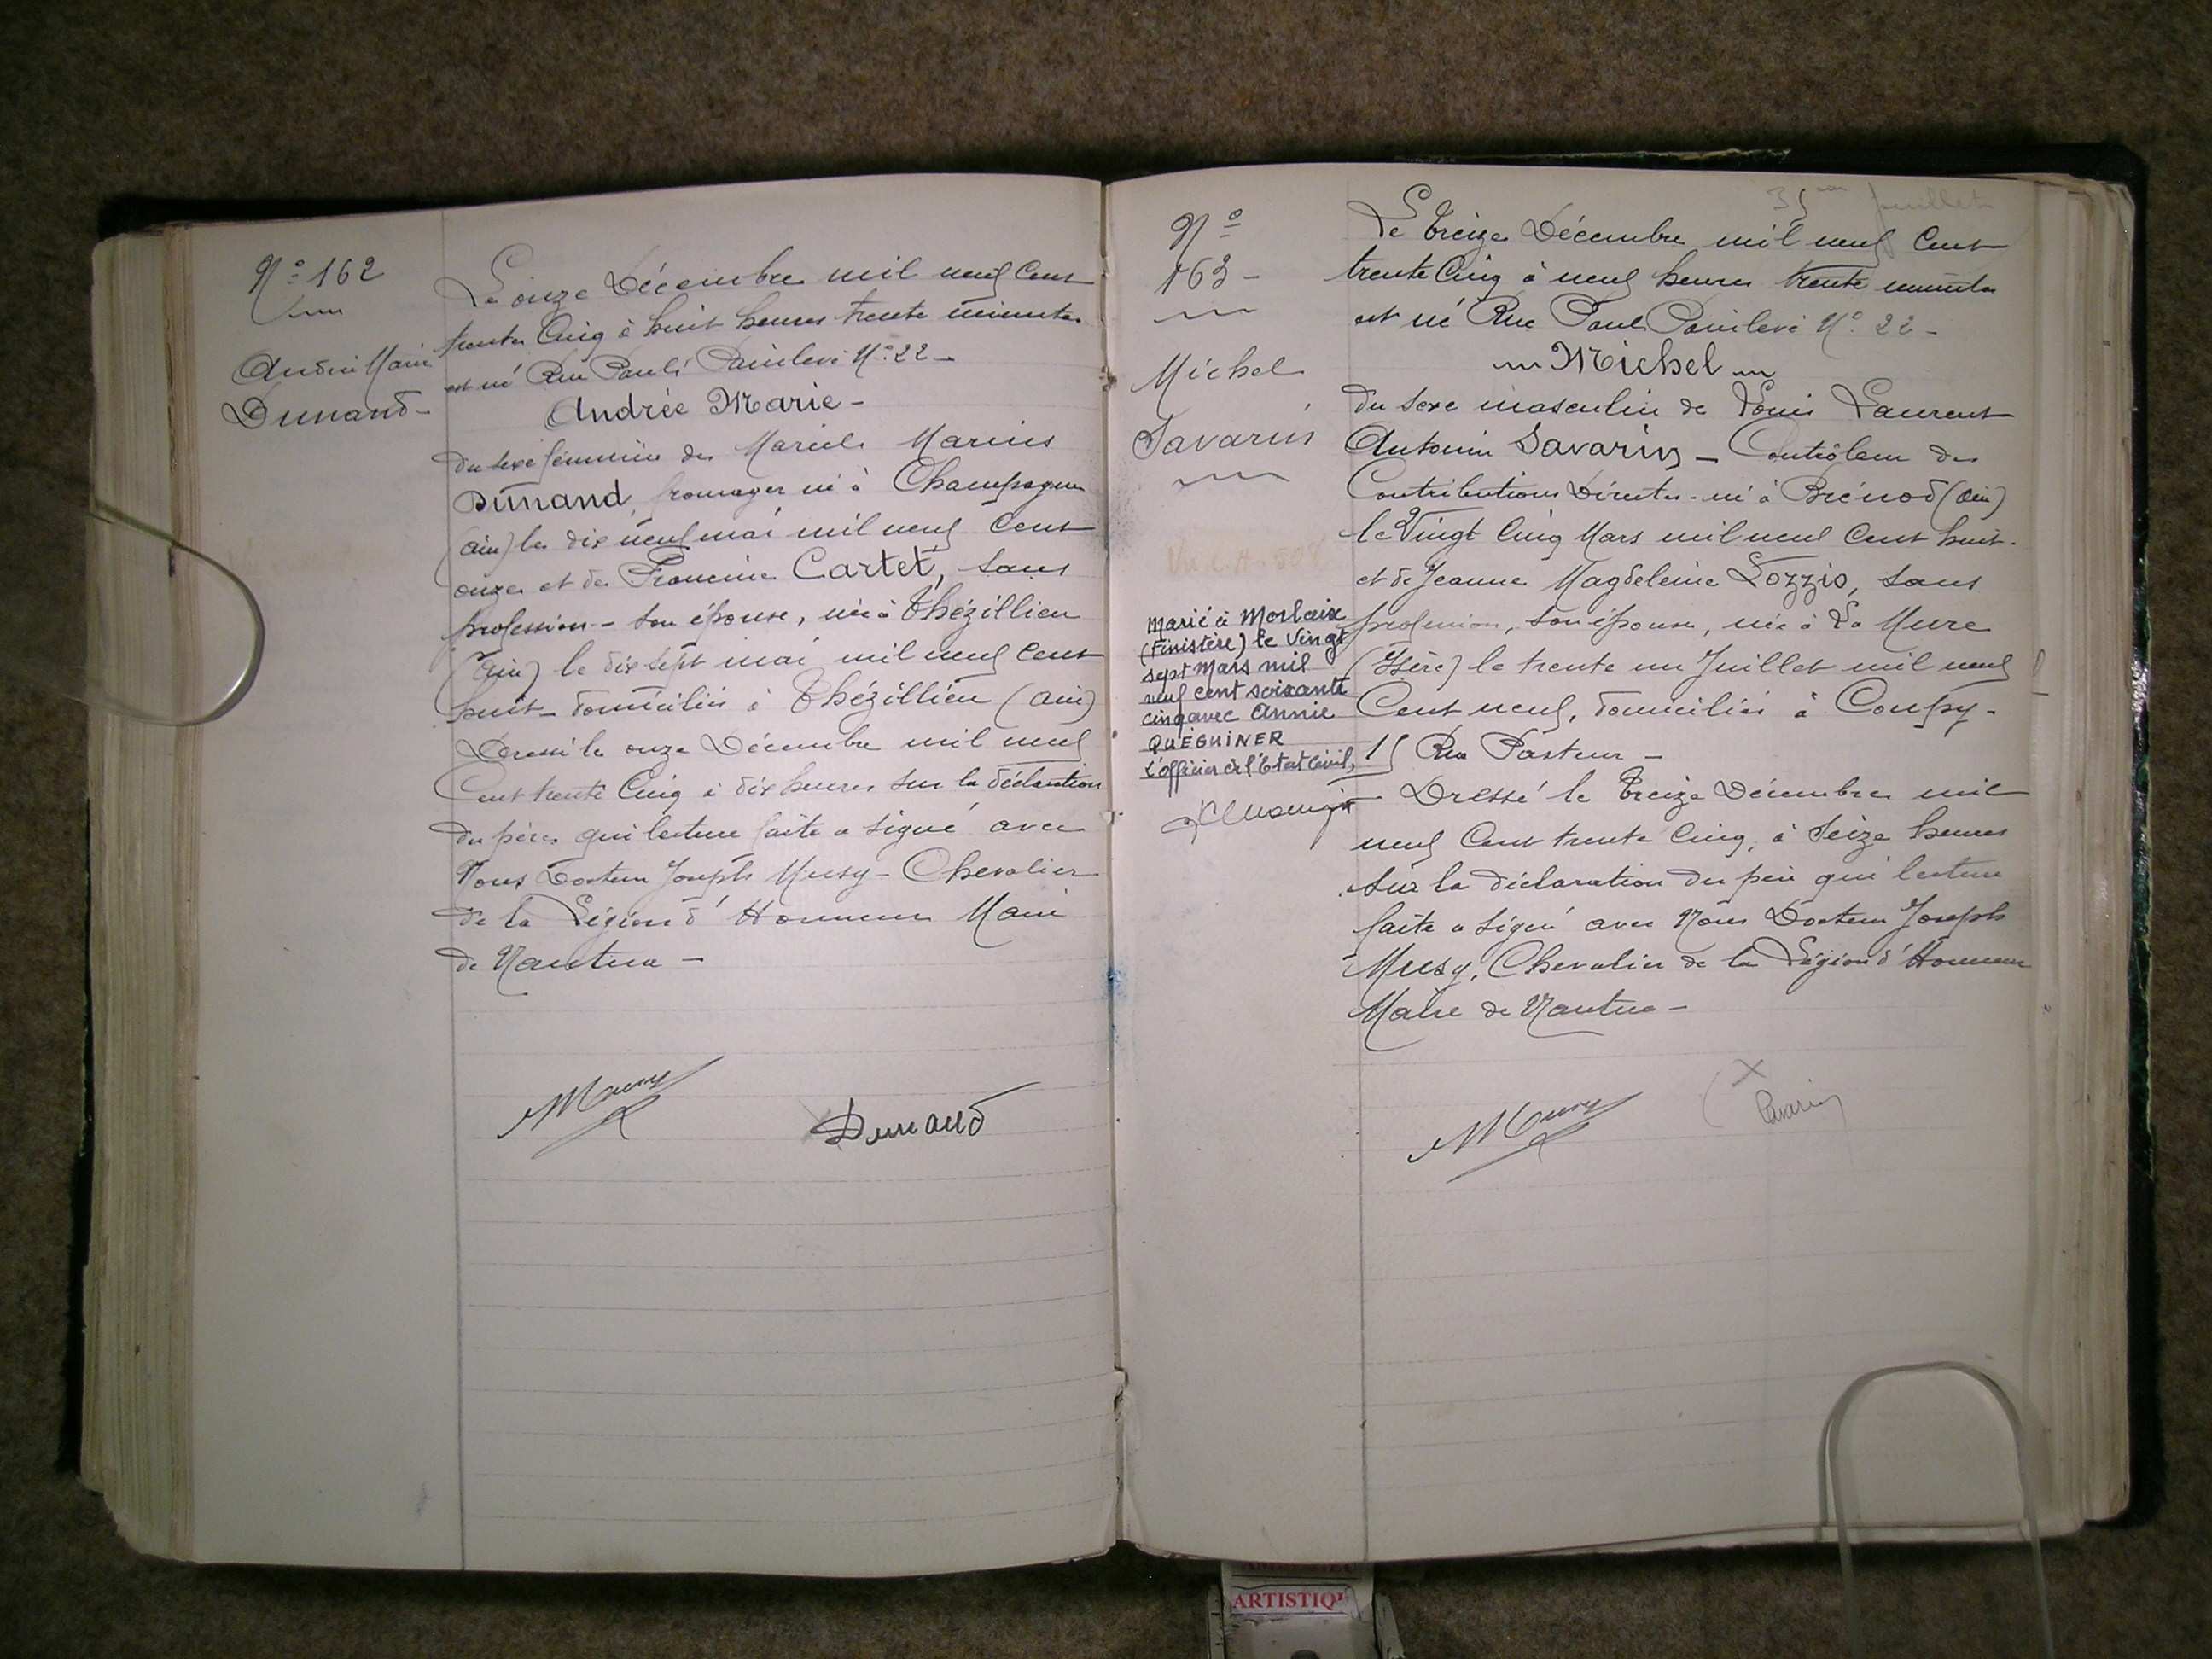 Nº 162
Andrée Marie
Dunand -
Le onze Décembre mil neuf Cent
trente Cinq à huit heures trente minutes
est né Rue Paul Painlevé Nº 22 -
Andrée Marie -
du sexe féminin de Marcel Marius
Dunand, fromager né à Champagne
(ain) le dix neuf mai mil neuf Cent
onze et de Francine Cartet, sans
profession - son épouse, née à Thézillieu
(ain) le dix sept mai mil neuf Cent
huit - domiciliés à Thézillieu (ain)
Dressé le onze Décembre mil neuf
Cent trente Cinq à dix heures sur la déclaration
du père, qui lecture faite a signé avec
Nous Docteur Joseph Musy - Chevalier
de la Légion d'Honneur Maire
de Nantua -
Dunand
Nº
163 -
Michel
Savarin
Marié à Morlaix
(Finistère) le vingt
sept Mars mil
neuf cent soixante
cinq avec Annie
QUÉGUINER
L'officier de l'Etat Civil,
Juillet
Le treize Décembre mil neuf Cent
trente Cinq à neuf heures trente minutes
est né Rue Paul Painlevé Nº 22 -
Michel
du sexe masculin de Louis Laurent
Antonin Savarin - Contrôleur des
Contributions Directes - né à Brénod (ain)
le Vingt Cinq Mars mil neuf Cent huit.
et de Jeanne Magdeleine Lozzio, sans
profession, son épouse, née à La Mure
(Isère) le trente un Juillet mil neuf
Cent neuf, domiciliés à Coupy -
Rue Pasteur -
Dressé le treize Décembre mil
neuf Cent trente Cinq, à Seize heures
sur la déclaration du père qui lecture
faite a signé avec Nous Docteur Joseph
Musy, Chevalier de la Légion d'Honneur
Maire de Nantua -
Savarin
ARTISTIQ